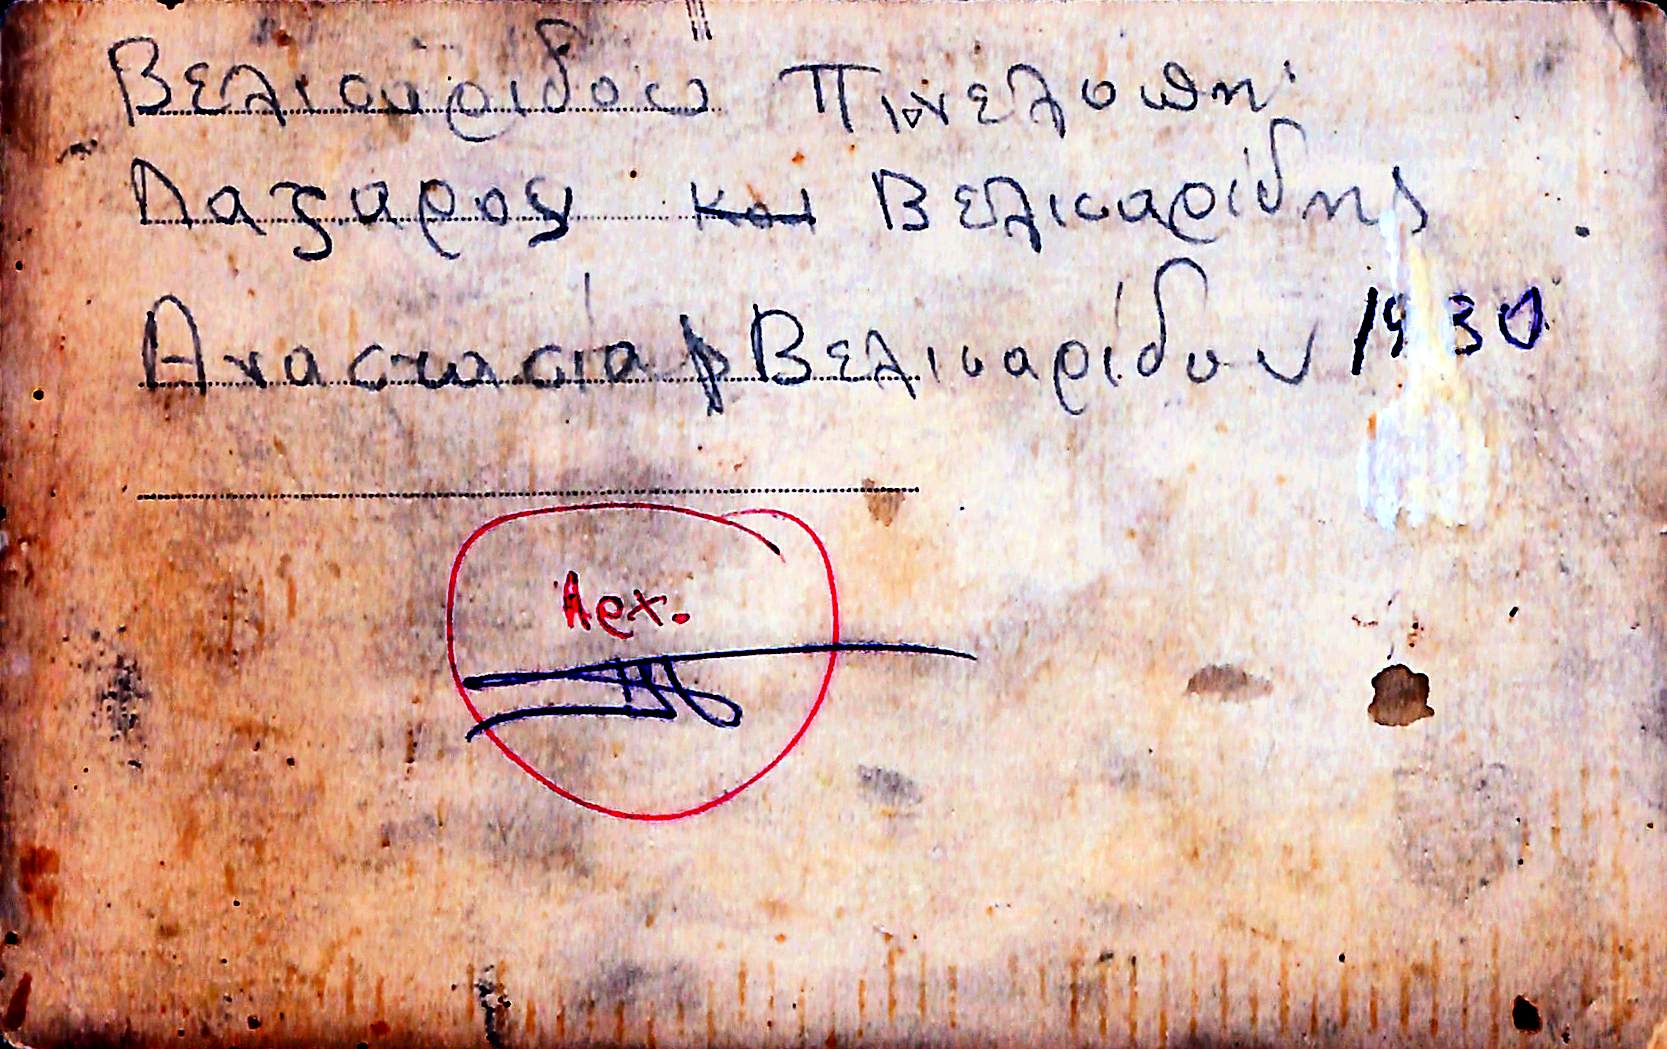 Βελισαριδου Πινελοπη
Λαζαρος και Βελισαρίδης
Αναστασία Βελισαρίδου 1930
Αρχ.